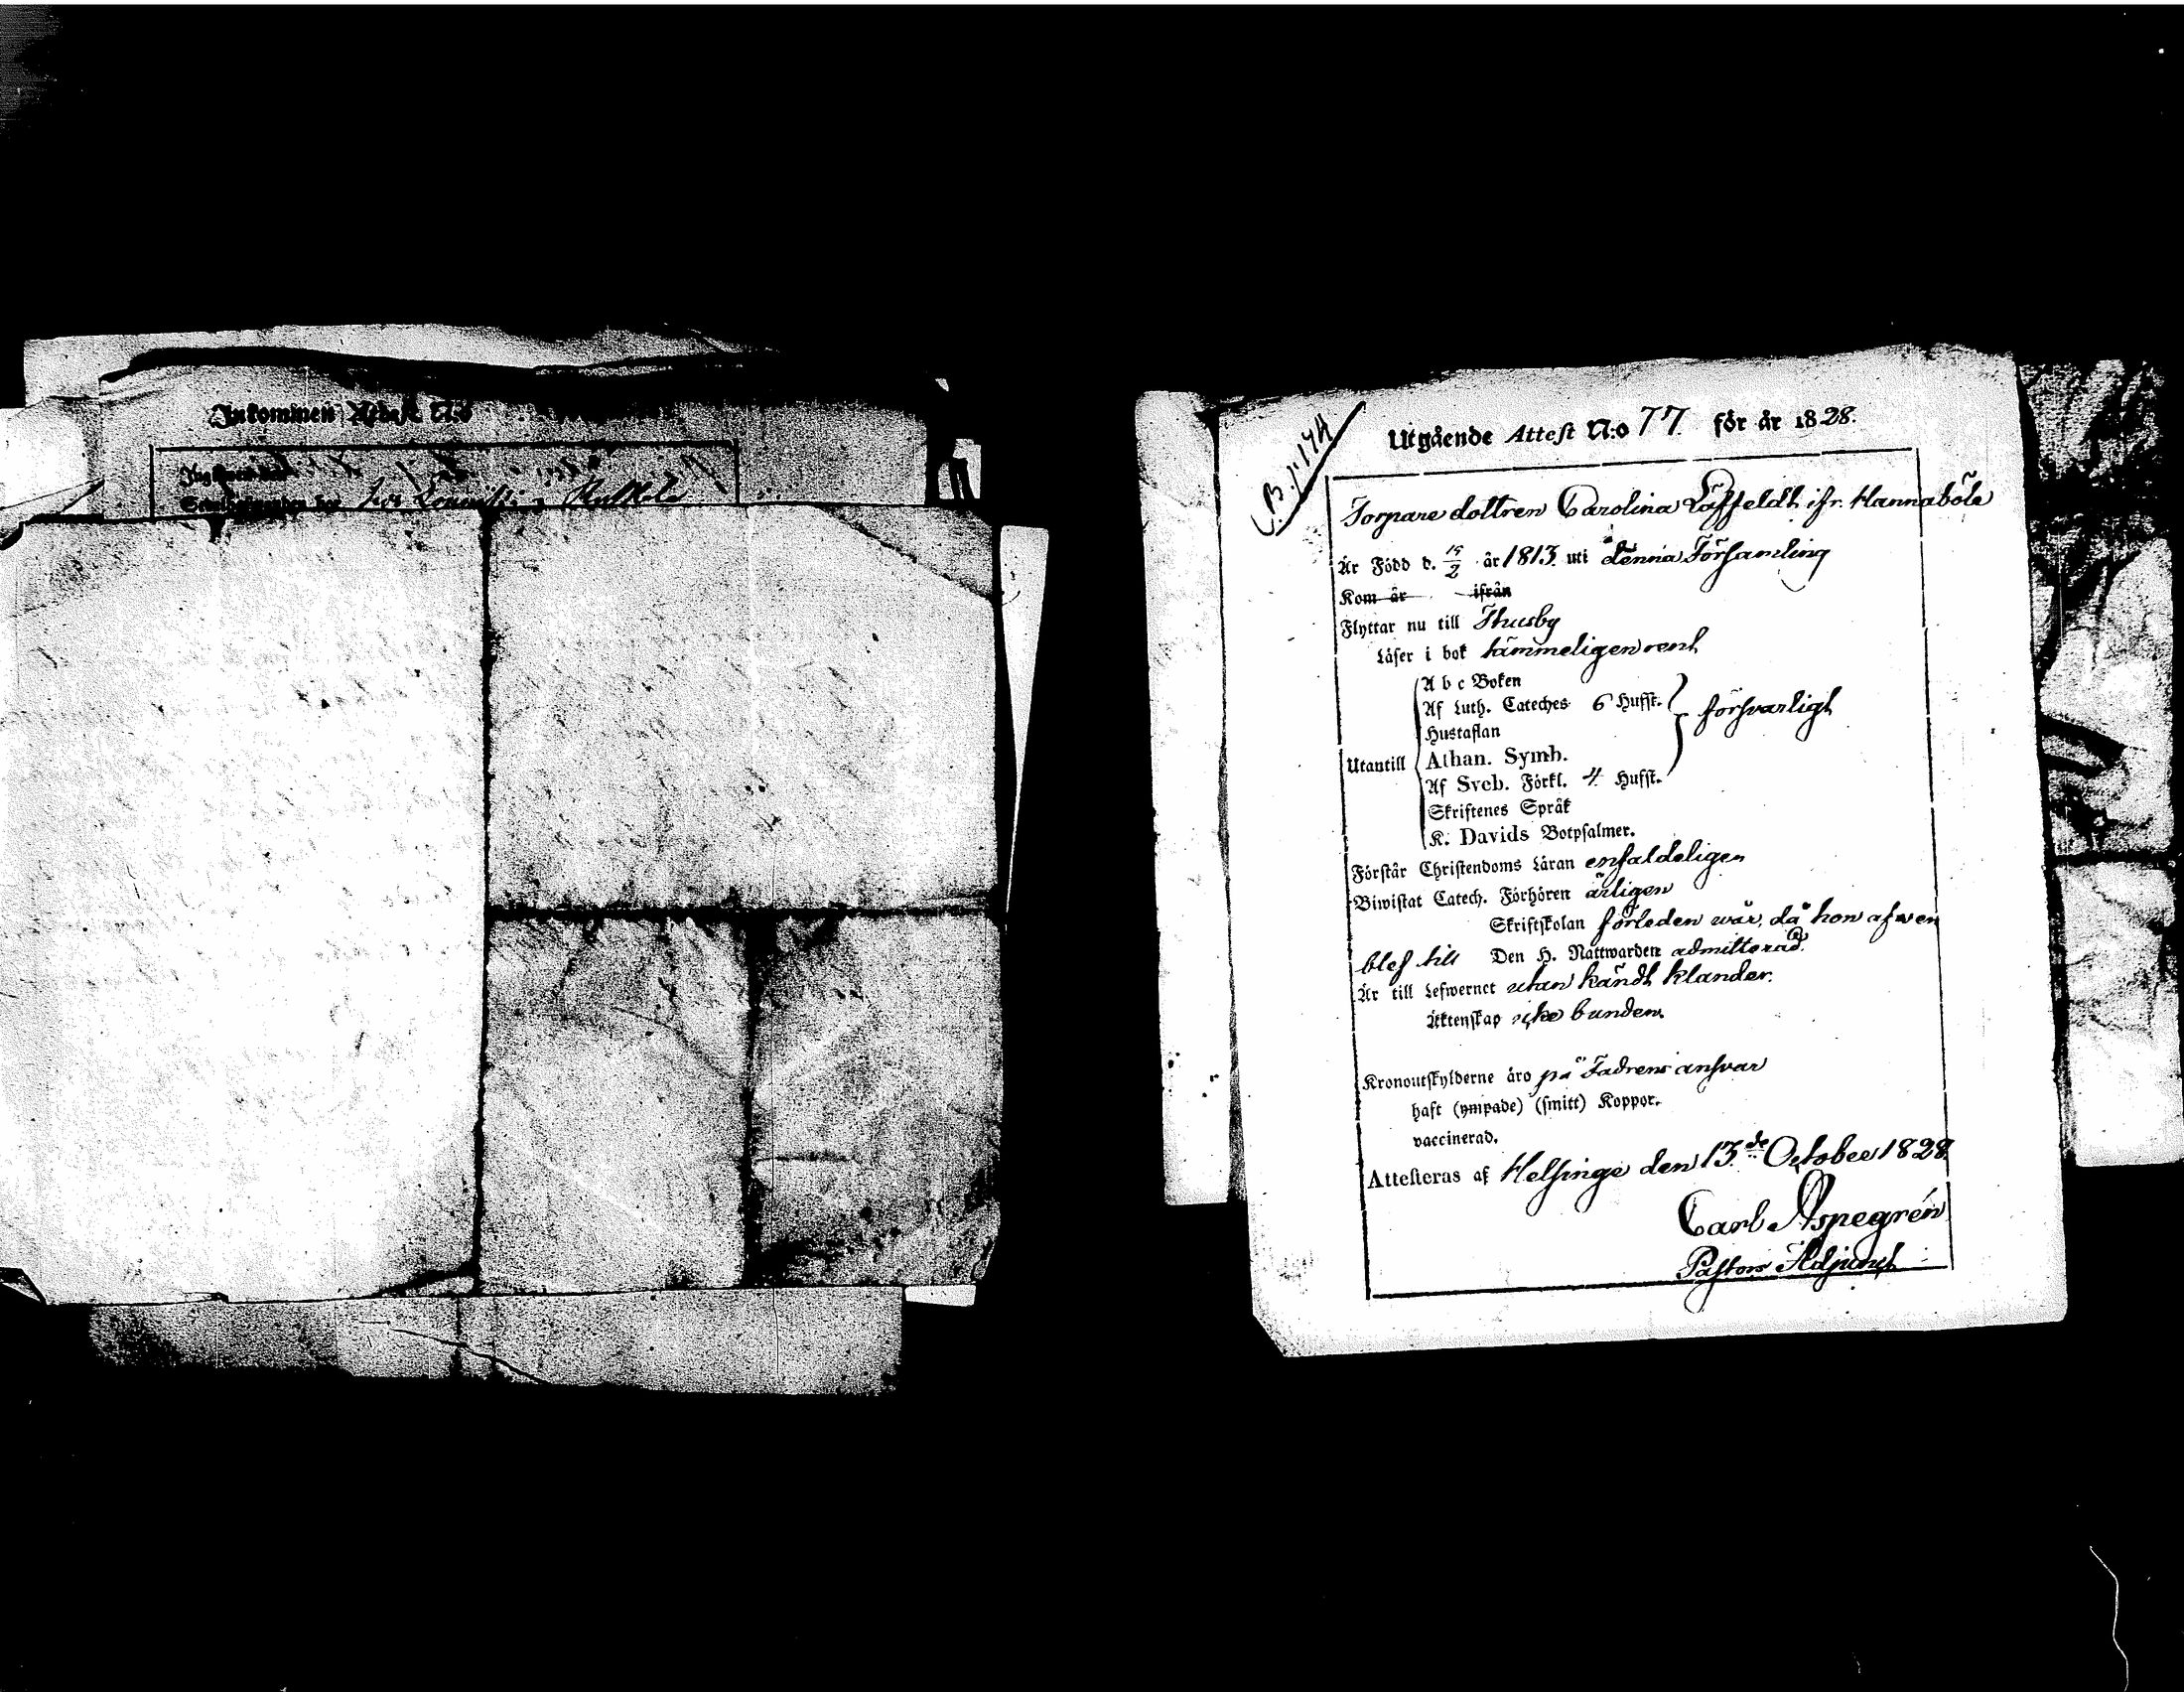 Inkommen Attest N:o
Utgående Attest N:o 77. för år 1828.
Torpare dottren Carolina Löffeldt ifr. Hannaböle
Är Född d. 15/2 år 1813. uti denna Församling
Kom år ifrån
Flyttar nu till Thusby
Läser i bok tämmeligen rent
A b c Boken
Af Luth. Cateches 6 Hufst.
försvarligt
Hustaflan
Utantill
Athan. Symb.
Af Sveb. Förkl. 4 Hufst.
Skriftenes Språk
K. Davids Botpsalmer.
Förstår Christendoms Läran enfaldeligen
Biwistat Catech. Förhören årligen
Skriftskolan förleden wår, då hon äfwen
blef till Den H. Nattwarden admitterad.
Är till Lefwernet utan kändt klander.
Äktenskap icke bunden.
Kronoutskylderne äro på Fadrens answar
haft (ympade) (smitt) Koppor.
vaccinerad.
Attesteras af Helsinge den 13.de October 1828.
Carl Aspegrén
Pastors Adjunct